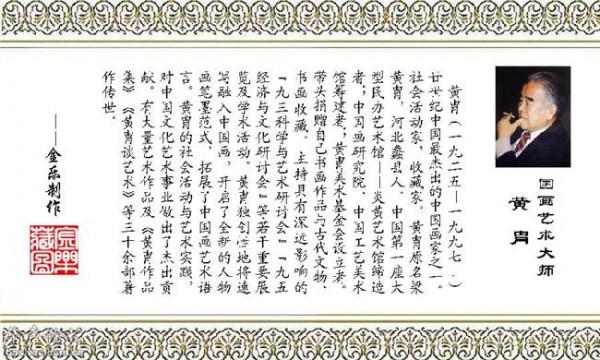 国画艺术大师
黄胄
黄胄（一九二五—一九九七．）
廿世纪中国最杰出的中国画家之一。
社会活动家，收藏家。黄胄原名梁
黄胄，河北蠡县人。中国第一座大
型民办艺术馆——炎黄艺术馆缔造
者；中国画研究院、中国工艺美术
馆筹建者；黄胄美术基金会设立者。
带头捐赠自己书画作品与古代文物
书画收藏。主持具有深远影响的
『九三科学与艺术研讨会』『九五
经济与文化研讨会』等若干重要展
览及学术活动。黄胄独创性地将速
写融入中国画，开启了全新的人物
画笔墨范式，拓展了中国画艺术语
言。黄胄的社会活动与艺术实践，
对中国文化艺术事业做出了杰出贡
献。有大量艺术作品及《黄胄作品
集》《黄胄谈艺术》等三十余部著
作传世。
——金乐制作